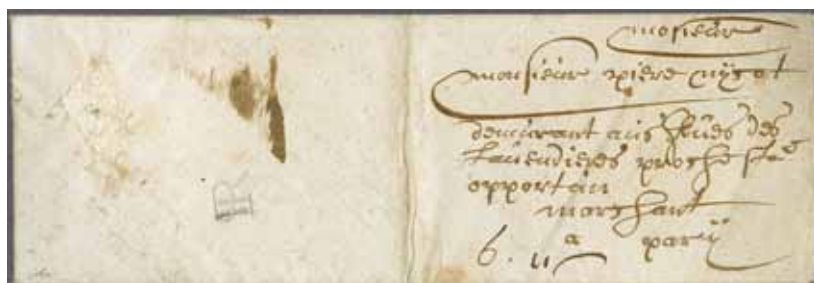 mosieur
monsieur piere nygot
demeurant aus Rues des
lauendieres proche ste
opportun
marchant
a pary
6. u